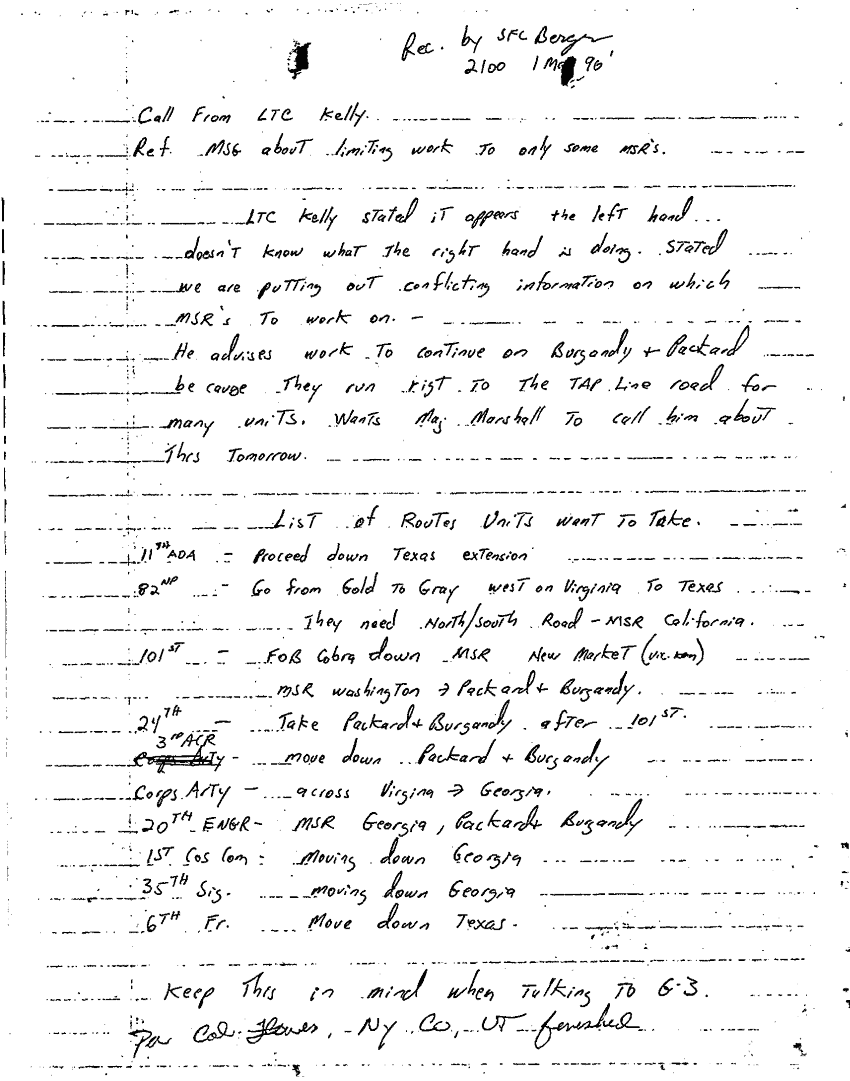 Rec. by SFC Berger
2100 1 Ma 90'
Call From LTC Kelly.
Ref MSG about limiting work To only some MSR's.
LTC Kelly stated iT appears the left hand...
doesn't know what The right hand is doing. STaTed
we are puTTing ouT conflicting information on which
MSR's To work on. -
He advises work To continue on Burgandy + Packard
be cause They run rigT To The TAP Line road for
many uniTs. WanTs Maj Marshall To call him abouT
This Tomorrow.
LisT of RouTes UniTs want To Take.
11TH ADA - Proceed down Texas extension
82ND - Go from Gold To Gray west on Virginia To Texas
They need North/south Road - MSR California.
101ST - FOB Cobra down MSR New MarkeT
MSR washingTon → Packard + Burgandy.
24TH - Take Packard + Burgandy after 101ST.
3rd ACR
Corps ArTy - move down Packard + Burgandy
Corps ArTy - across Virgina → Georgia.
20TH ENGR - MSR Georgia, Packard + Bugandy
1ST Cos Com : Moving down Georgia
35TH Sig. moving down Georgia
6TH Fr. Move down Texas.
Keep This in mind when Talking To G-3.
Per Col. , - Ny Co, UT